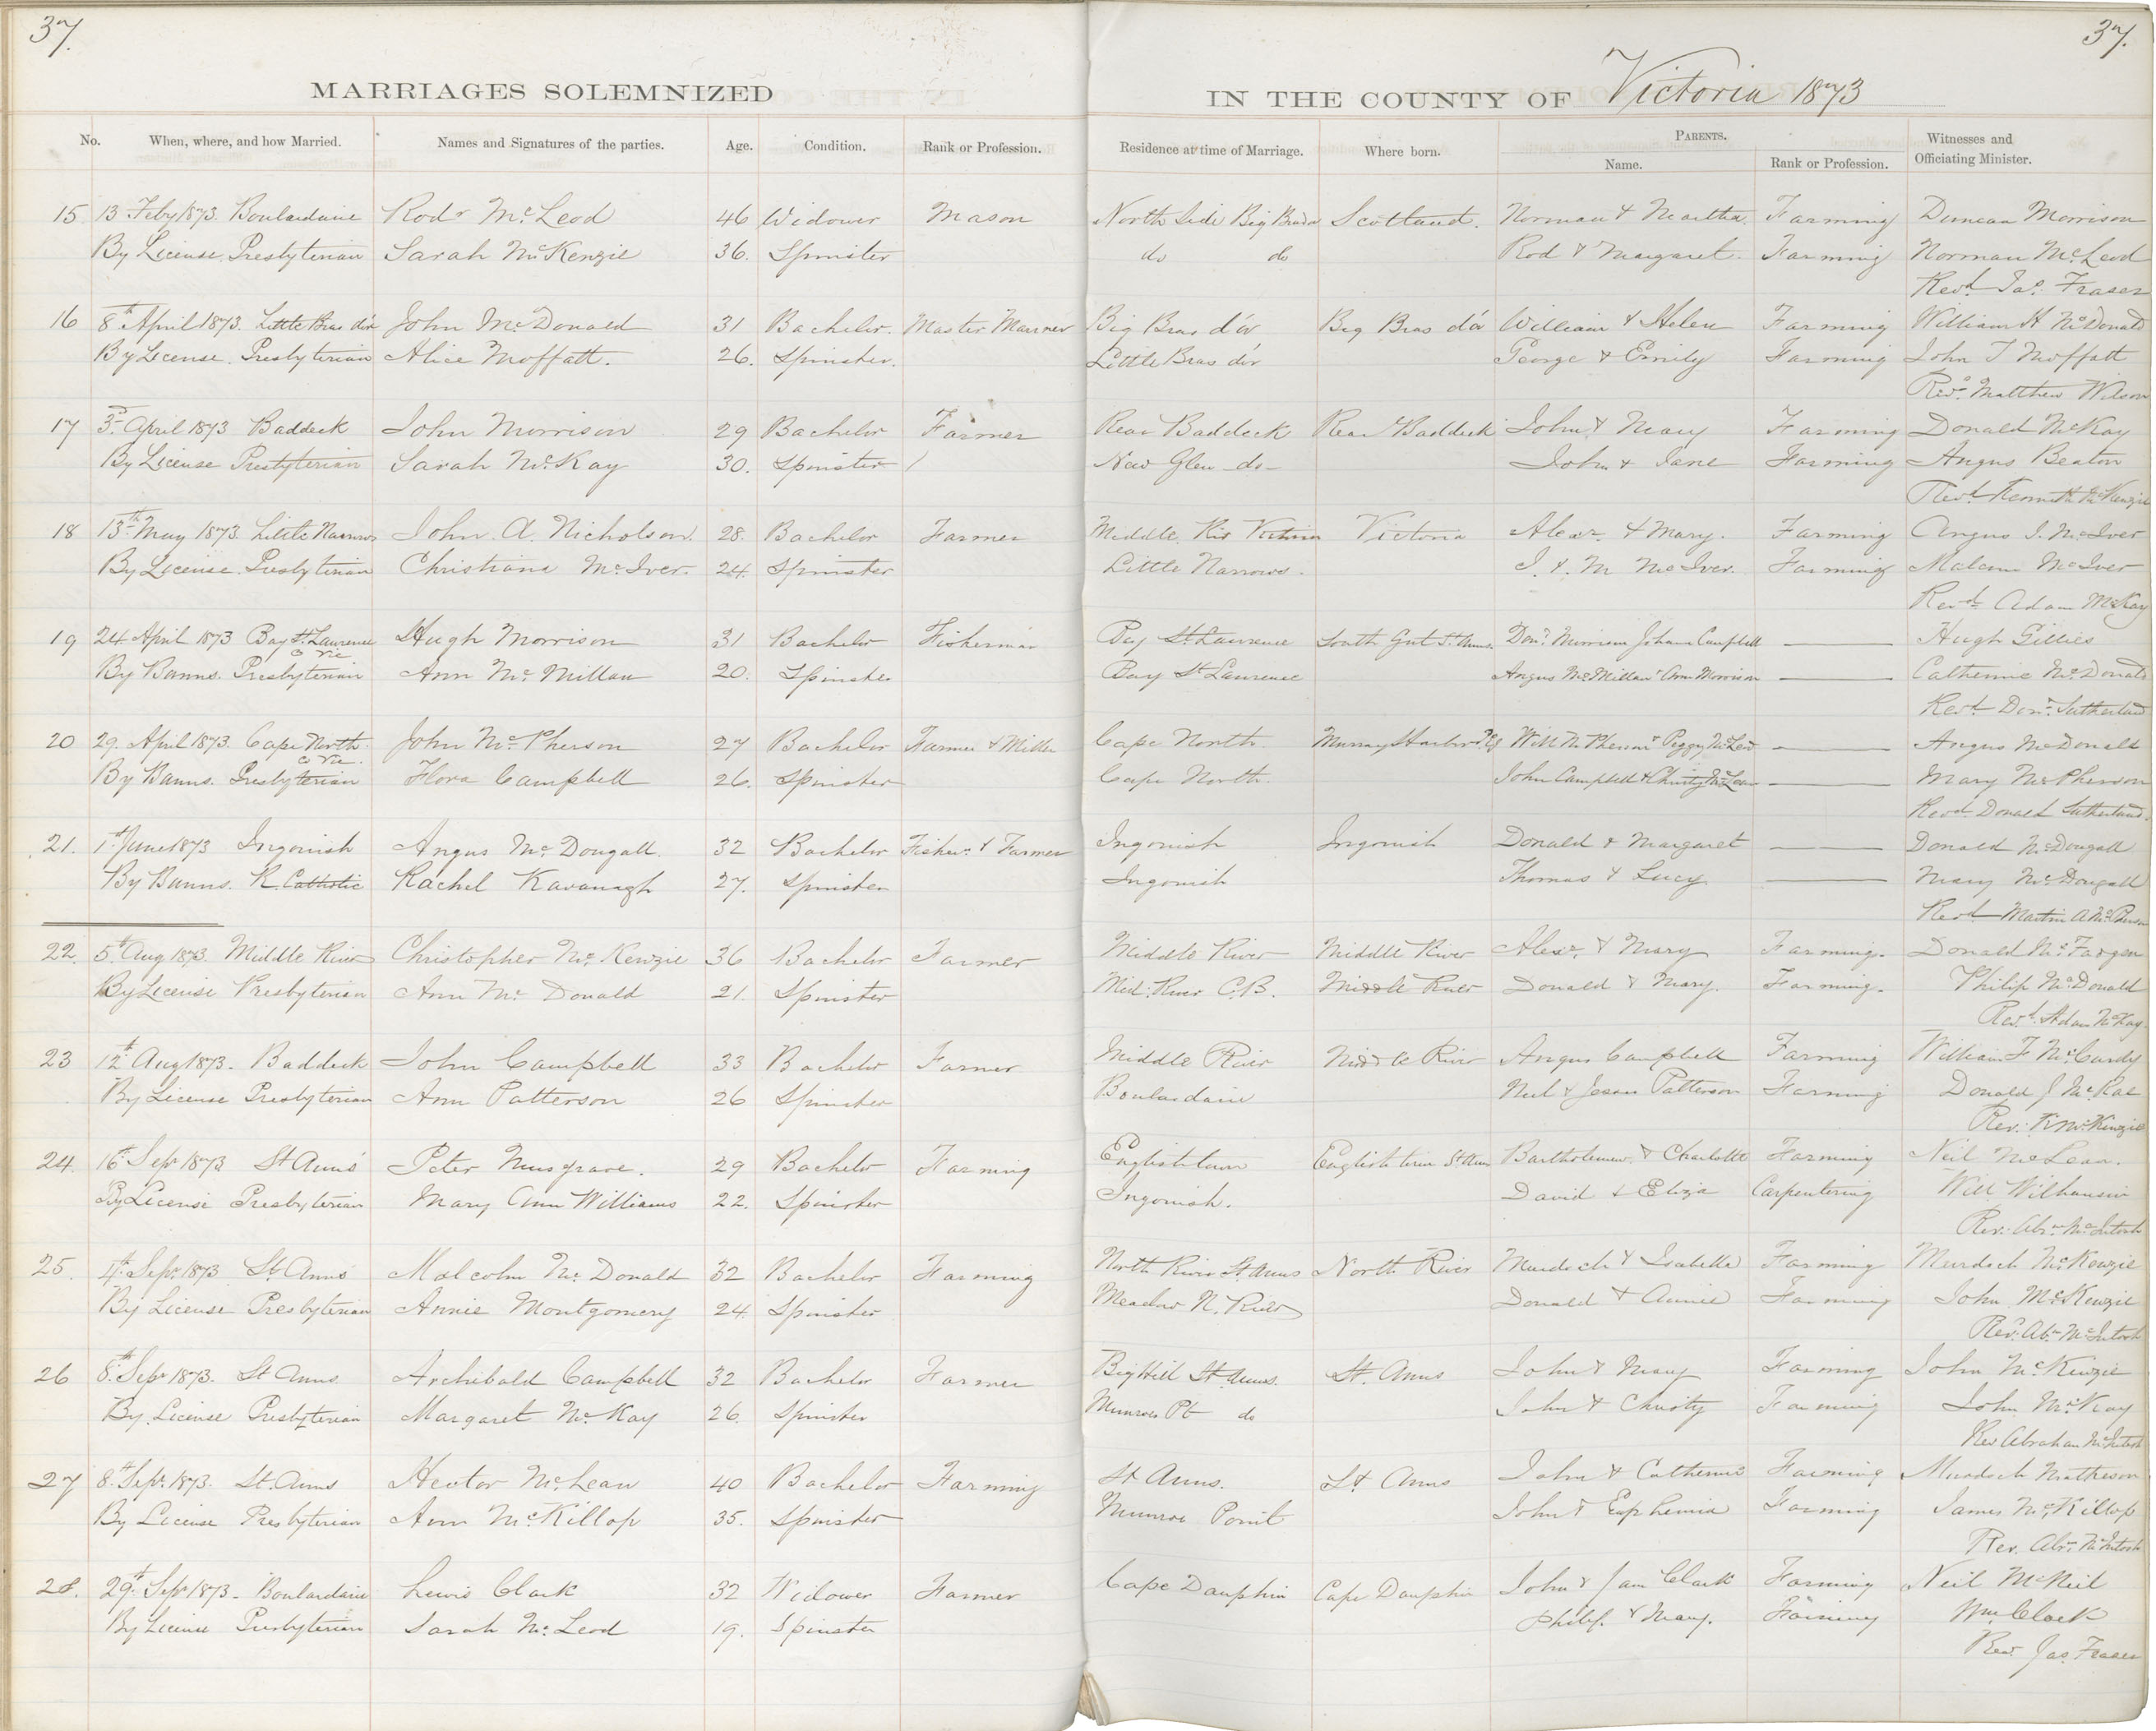 37.
37.
MARRIAGES SOLEMNIZED IN THE COUNTY OF Victoria 1873
No. When, where, and how Married. Names and Signatures of the parties. Age. Condition. Rank or Profession. Residence at time of Marriage. Where born. PARENTS. Name. Rank or Profession. Witnesses and Officiating Minister.
15 13 Feby 1873. Boulardarie Rodr McLeod 46 Widower Mason North Side Big Brador Scotland. Norman & Martha Farming Duncan Morrison
By License. Presbyterian Sarah McKenzie 36. Spinster do do Rod & Margaret. Farming Norman McLeod
Revd Jas. Fraser
16 8th April 1873. Little Bras d'or John McDonald 31 Bachelor. Master Mariner Big Bras d'or Big Bras d'or William & Helen Farming William H McDonald
By License. Presbyterian Alice Moffatt. 26. Spinster. Little Bras d'or George & Emily Farming John T Moffatt
Revd. Matthew Wilson
17 3rd April 1873 Baddeck John Morrison 29 Bachelor Farmer Rear Baddeck Rear Baddeck John & Mary Farming Donald McKay
By License Presbyterian Sarah McKay 30. Spinster New Glen -do- John & Jane Farming Angus Beaton
Revd Kenneth McKenzie
18 13th May 1873. Little Narrows John A. Nicholson. 28. Bachelor Farmer Middle Riv Victoria Victoria Alexr. & Mary. Farming Angus J. McIver
By License. Presbyterian Christiana McIver. 24. Spinster Little Narrows. J. & M McIver. Farming Malcom McIver
Revd. Adam McKay
19 24 April 1873 Bay St. Lawrence Hugh Morrison 31 Bachelor Fisherman Bay St Lawrence South Gut St. Anns. Dond. Morrison Johana Campbell Hugh Gillies
C Vic
By Banns. Presbyterian Ann McMillan 20. Spinster Bay St Lawrence Angus McMillan & Ann Morrison Catherine McDonald
Revd Dond. Sutherland
20 29. April 1873. Cape North. John McPherson 27 Bachelor Farmer & Miller Cape North. Murray Harbor P.E.I Will McPherson & Peggy McLeod Angus McDonald
C Vic.
By Banns. Presbyterian Flora Campbell 26. Spinster Cape North. John Campbell & Christy McLean Mary McPherson
Revd. Donald Sutherland.
21. 1st June 1873 Ingonish Angus McDougall. 32 Bachelor Fisher. & Farmer Ingonish Ingonish Donald & Margaret Donald McDougall
By Banns. R. Catholic Rachel Kavanagh 27. Spinster Ingonish Thomas & Lucy Mary McDougall
Revd Martin A McPherson
22. 5th Aug 1873. Middle River Christopher McKenzie 36 Bachelor Farmer Middle River Middle River Alexr. & Mary Farming. Donald McFargen
By License Presbyterian Ann McDonald 21. Spinster Mid. River C.B. Middle River Donald & Mary. Farming. Philip McDonald
Revd. Adam McKay
23 12th Aug 1873. Baddeck John Campbell 33 Bachelor Farmer Middle River Middle River Angus Campbell Farming William F McCurdy
By License Presbyterian Ann Patterson 26 Spinster Boulardarie Neil & Jessie Patterson Farming Donald J McRae
Rev. K McKenzie
24. 16th Sepr 1873 St Anns Peter Musgrave. 29 Bachelor Farming Englishtown Englishtown St Anns Bartholomew. & Charlotte Farming Neil McLean.
By License Presbyterian Mary Ann Williams 22. Spinster Ingonish. David & Eliza Carpentering Will
Rev. Abrm McIntosh
25. 4th Sepr. 1873 St. Anns Malcolm McDonald 32 Bachelor Farming North River St. Anns North River Murdoch & Isabella Farming Murdoch McKenzie
By License Presbyterian Annie Montgomery 24 Spinster Meadow N. River Donald & Annie Farming John McKenzie
Rev. Abm McIntosh
26 8th Sepr 1873. St Anns. Archibald Campbell 32 Bachelor Farmer Big Hill St. Anns. St. Anns John & Mary Farming John McKenzie
By License Presbyterian Margaret McKay 26. Spinster Munroes Pt do John & Christy Farming John McKay
Rev Abraham McIntosh
27 8th Sepr. 1873. St. Anns Hector McLean 40 Bachelor Farming St Anns. St Anns John & Catherine Farming Murdoch Matheson
By License Presbyterian Ann McKillop 35. Spinster Munroe Point John & Euphemia Farming James McKillop
Rev. Abrm. McIntosh
28. 29th Sepr 1873. Boulardarie Lewis Clark 32 Widower Farmer Cape Dauphin Cape Dauphin John & Jane Clark Farming Neil McNeil
By License Presbyterian Sarah McLeod 19. Spinster Philip. & Mary. Farming Wm Clark
Rev. Jas. Fraser